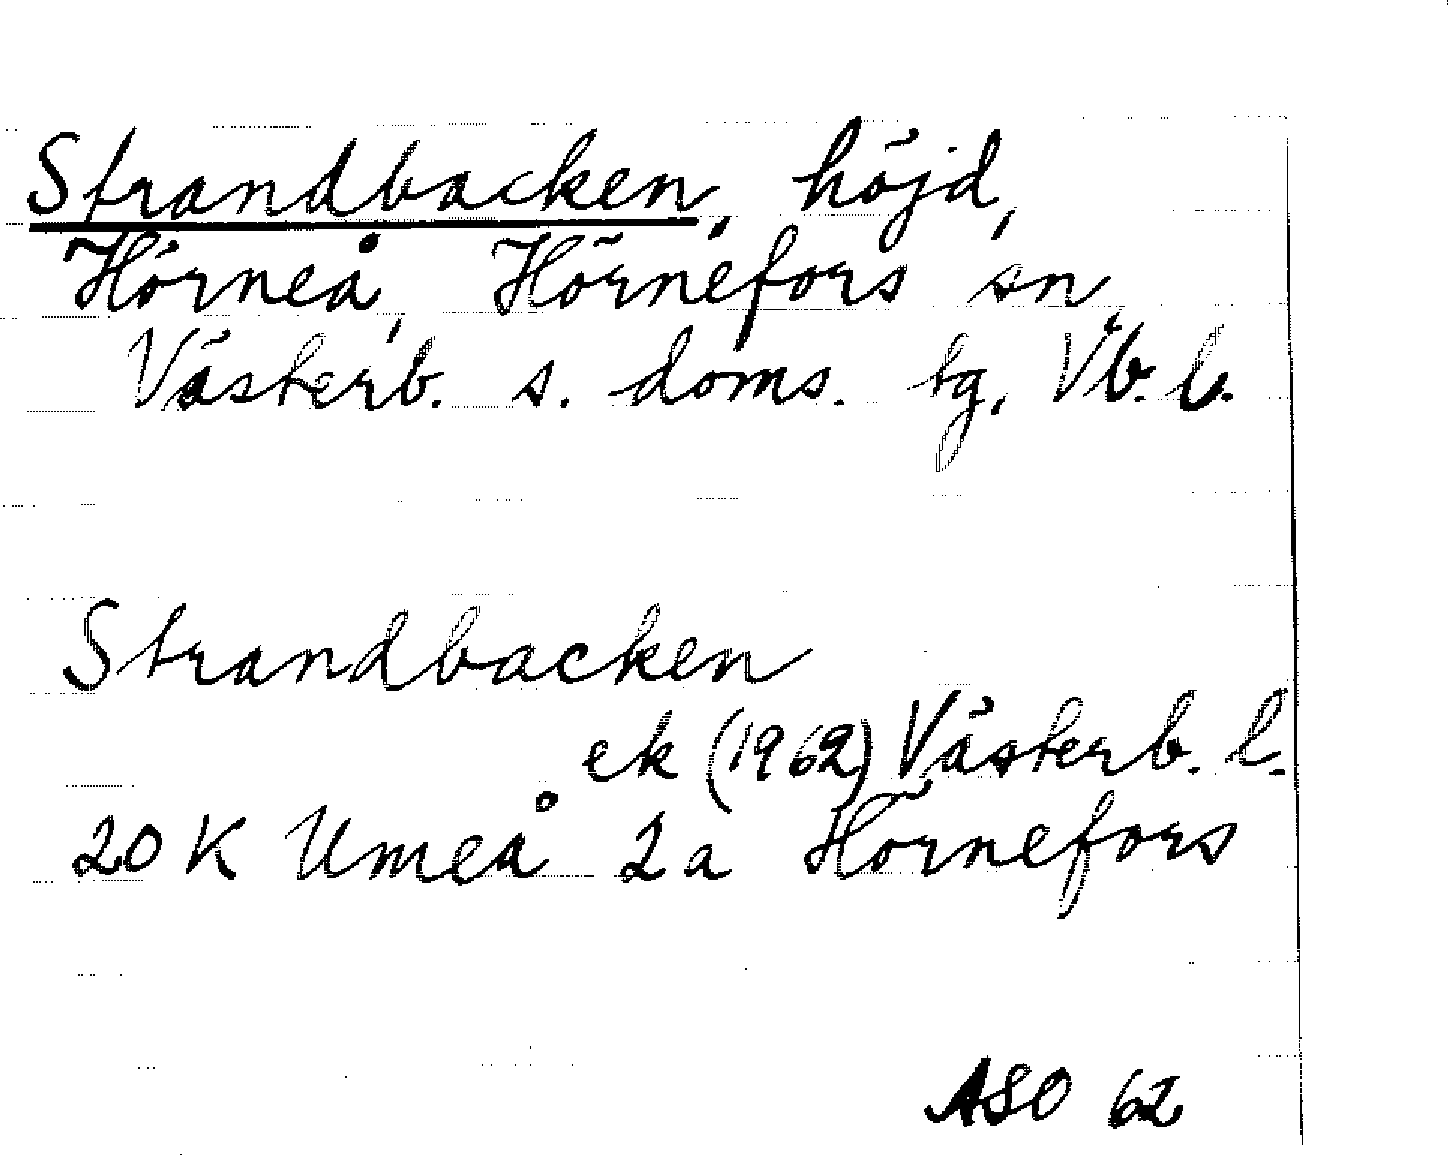 Strandbacken, höjd,
Hörneå, Hörnefors sn,
Västerb. s. doms. tg, Vb. l.
Strandbacken
ek (1962) Västerb. l.
20 K Umeå 2a Hörnefors
ASO 62